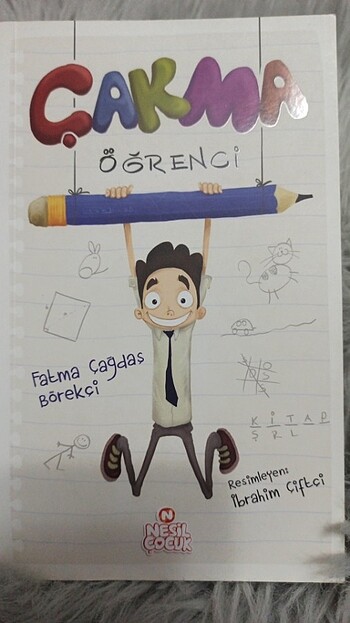 ÇAKMA
ÖĞRENCİ
Fatma Çağdaş
Börekçi
K İ T A P
Ş R L
Resimleyen:
İbrahim Çiftçi
N
NESİL
ÇOCUK